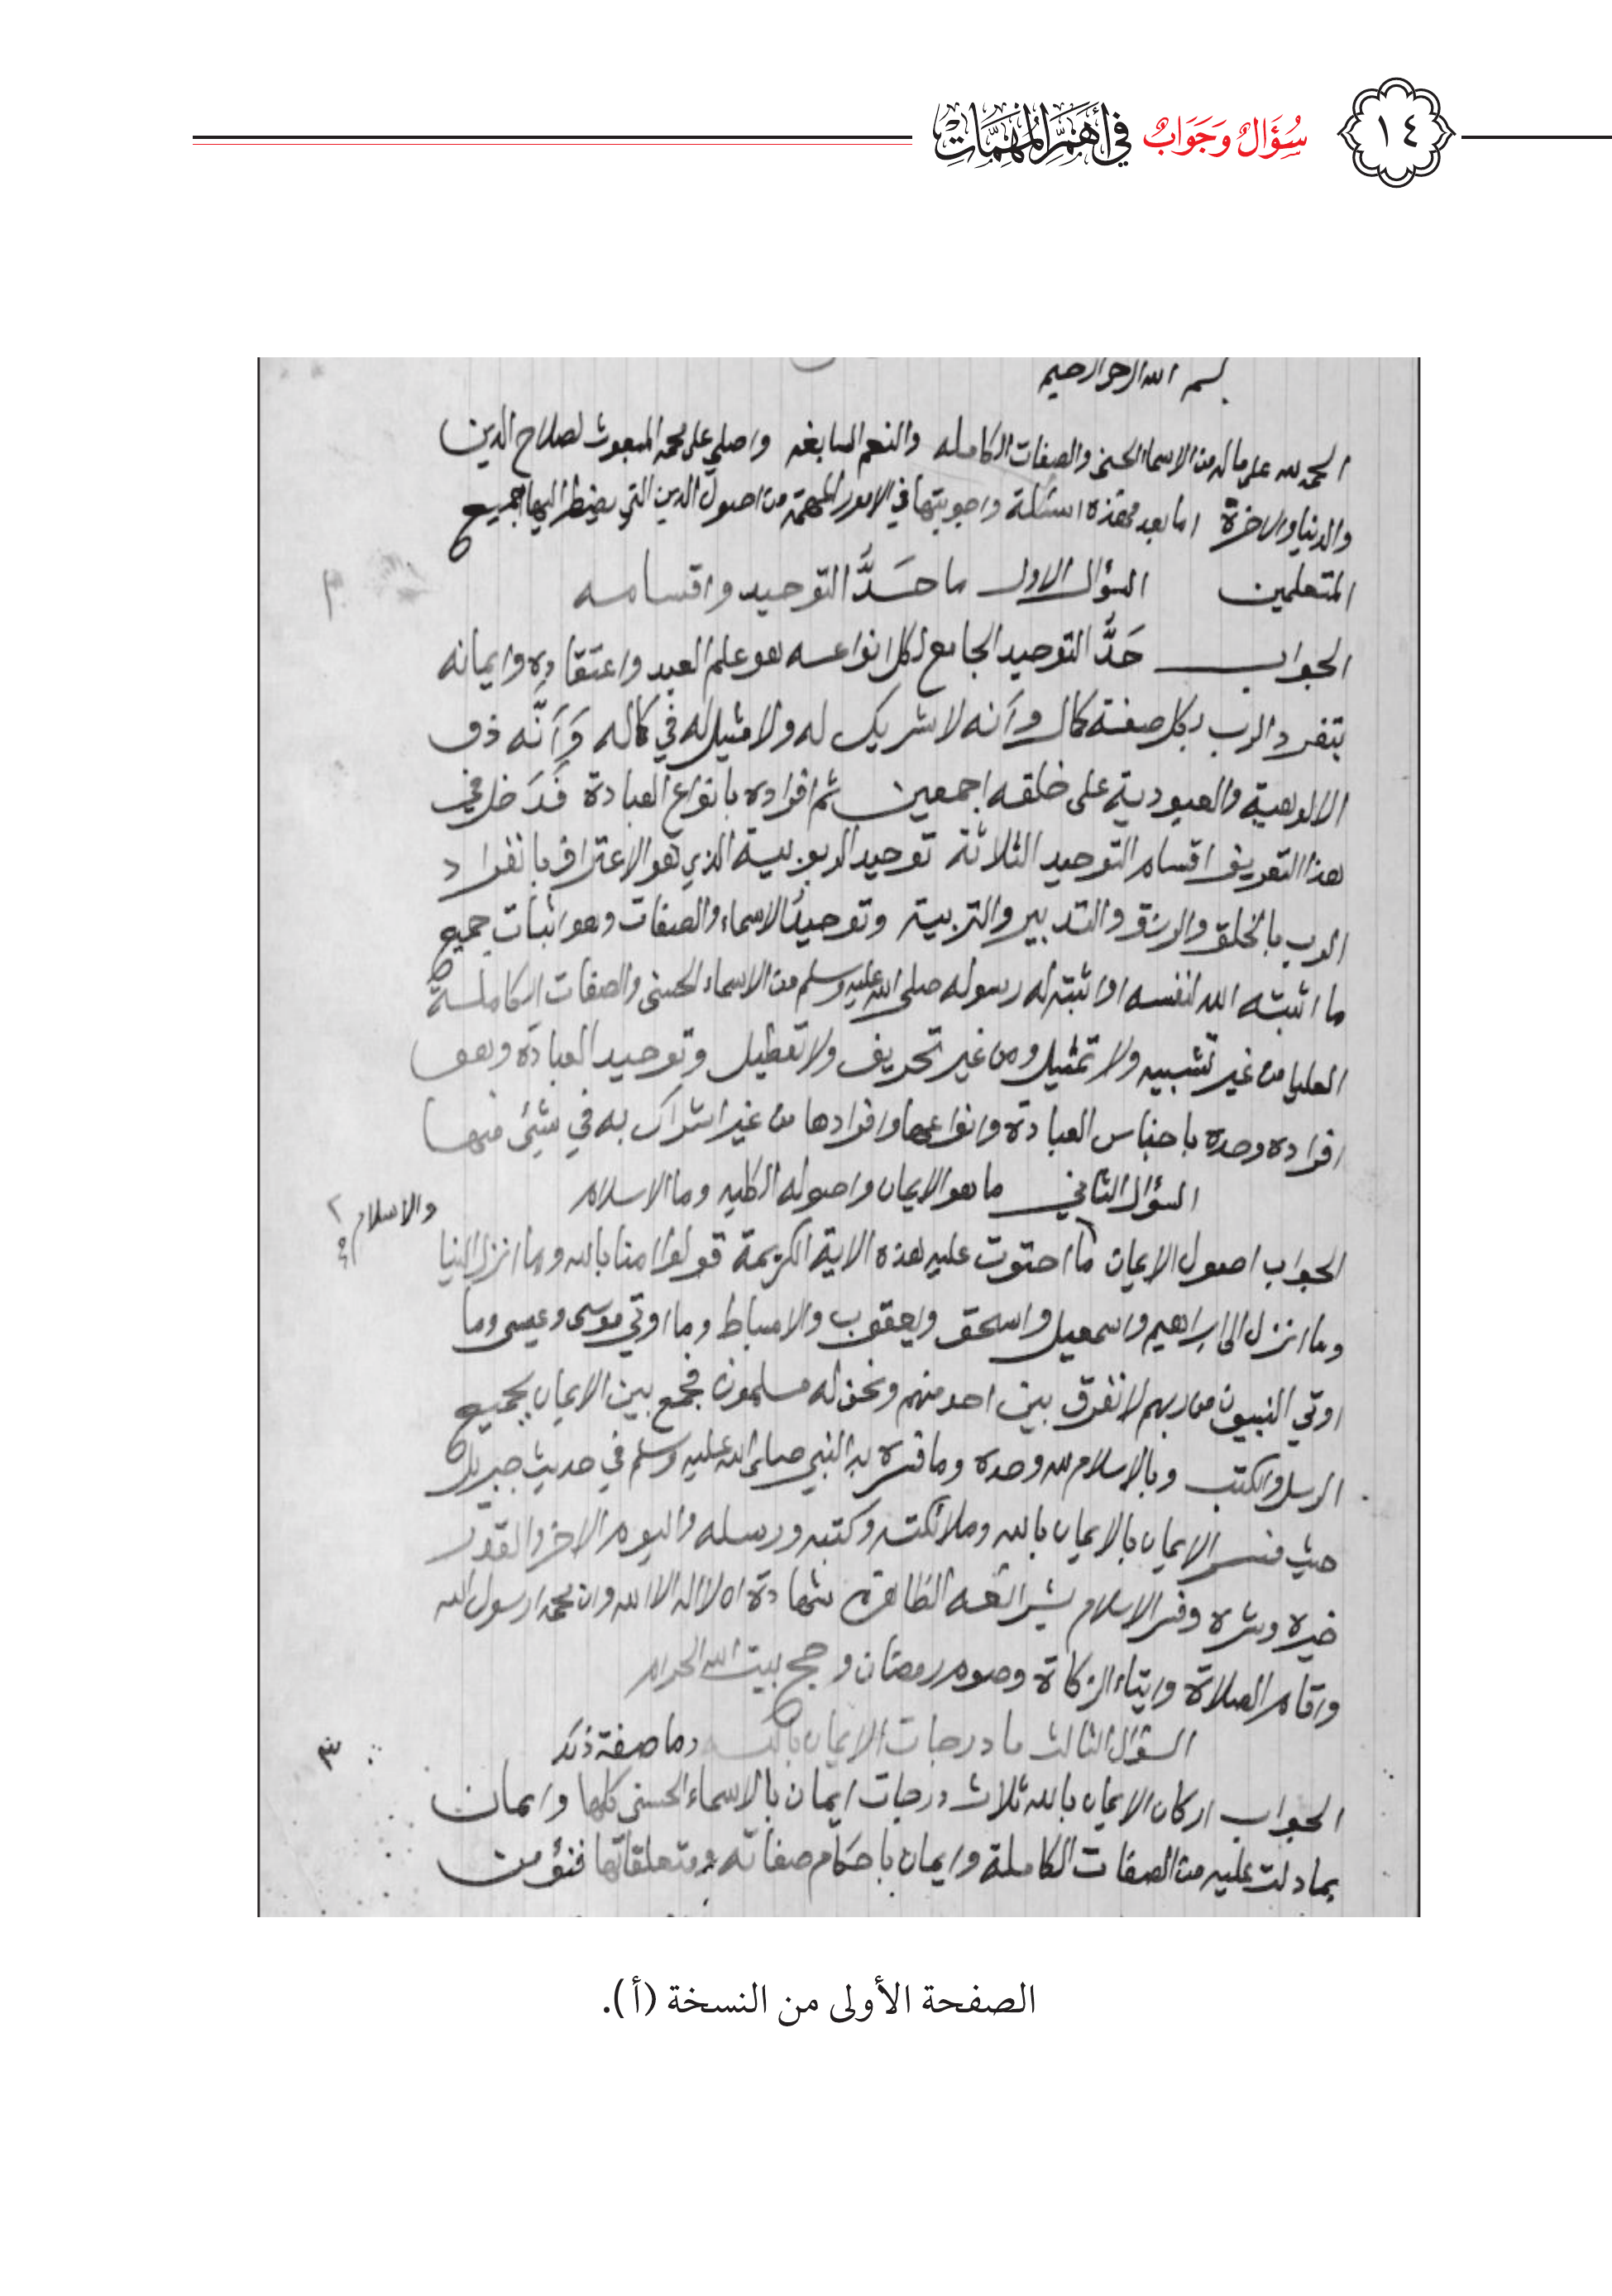 ١٤
سُؤَالٌ وَجَوَابٌ في أَهَمِّ المُهِمَّاتِ
بسم الله الرحمن الرحيم
الحمد لله على ماله من الاسما الحسنى والصفات الكامله والنعم السابغه واصلي على محمد المبعوث لصلاح الدين
والدنيا والاخرة اما بعد فهذه اسئلة واجوبتها في الامور المهمة من اصول الدين التي يضطر اليها جميع
المتعلمين السؤال الاول ما حَدَّ التوحيد واقسامه
الجواب حَدَّ التوحيد الجامع لكل انواعه هو علم العبد واعتقاده وايمانه
بتفرد الرب بكل صفة كمال وأنه لا شريك له ولا مثيل له في كماله وَأَنَّه ذو
الالوهية والعبودية على خلقه اجمعين ثم افراده بانواع العبادة فَدَخل في
هذا التعريف اقسام التوحيد الثلاثة توحيد الربوبية الذي هو الاعتراف بانفراد
الرب بالخلق والرزق والتدبير والتربية وتوحيدُ الاسماء والصفات وهو اثبات جميع
ما اثبته الله لنفسه او اثبته له رسوله صلى الله عليه وسلم من الاسماء الحسنى والصفات الكاملة
العليا من غير تشبيه ولا تمثيل ومن غير تحريف ولا تعطيل وتوحيد العبادة وهو
افراده وحده باجناس العبادة وانواعها وافرادها من غير اشراك به في شئ منها
السؤال الثاني ما هو الايمان واصوله الكليه وما الاسلام
والاسلام ٢
الجواب اصول الايمان ما احتوت عليه هذه الاية الكريمة قولوا امنا بالله وما انزل الينا
وما انزل الى ابراهيم واسمعيل واسحق ويعقوب والاسباط وما اوتي موسى وعيسى وما
اوتي النبيون من ربهم لا نفرق بين احد منهم ونحن له مسلمون فجمع بين الايمان بجميع
الرسل والكتب وبالاسلام لله وحده وما فسره به النبي صلى الله عليه وسلم في حديث جبريل
حيث فسر الايمان بالايمان بالله وملائكته وكتبه ورسله واليوم الاخر والقدر
خيره وشره وفسر الاسلام بشرائعه الظاهرة شهادة ان لا اله الا الله وان محمدا رسول الله
واقام الصلاة وايتاء الزكاة وصوم رمضان وحج بيت الله الحرام
السؤال الثالث ما درجات الايمان بالله وما صفة ذلك
٣
الجواب اركان الايمان بالله ثلاث درجات ايمان بالاسماء الحسنى كلها وايمان
بما دلت عليه من الصفات الكاملة وايمان باحكام صفاته ومتعلقاتها فنؤمن
الصفحة الأولى من النسخة (أ).